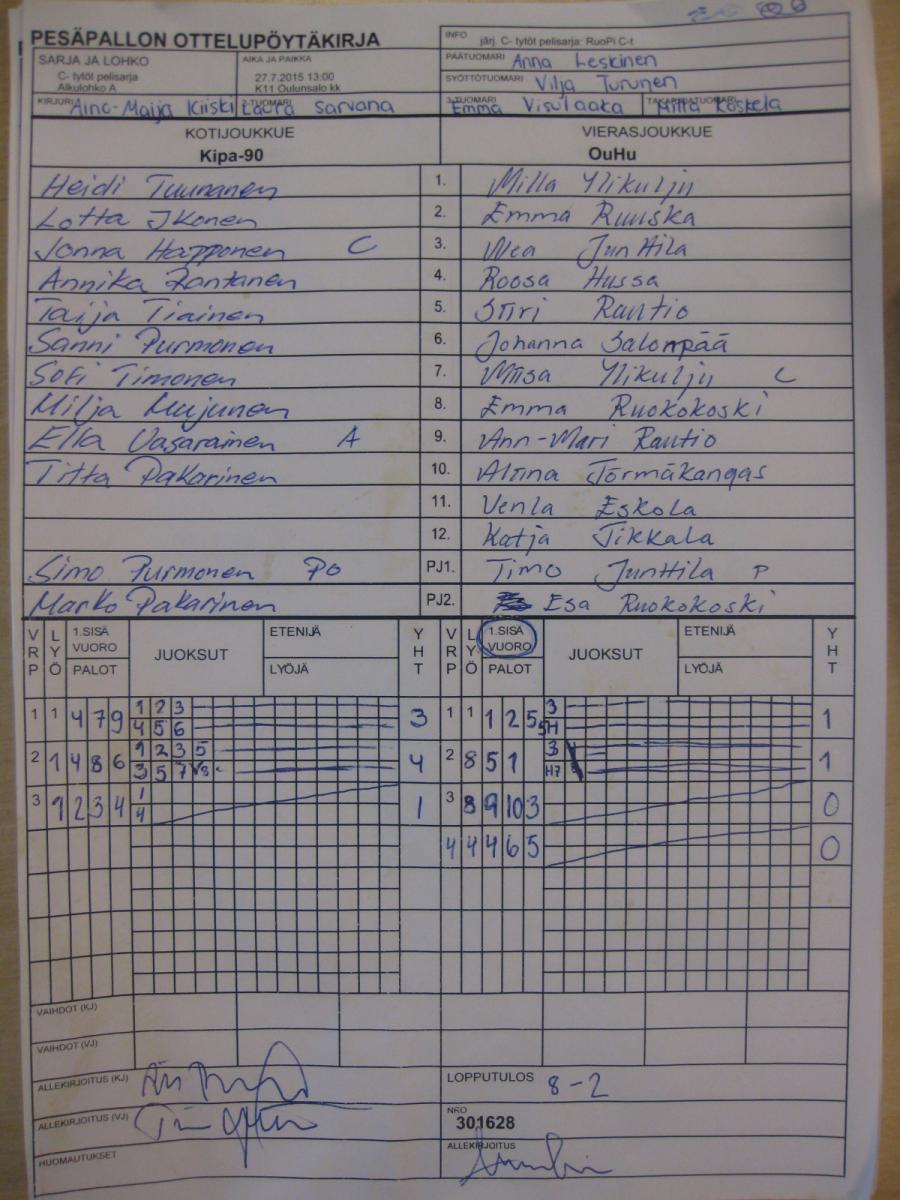 PESÄPALLON OTTELUPÖYTÄKIRJA
INFO järj. C- tytöt pelisarja: RuoPi C-t
SARJA JA LOHKO
C- tytöt pelisarja
Alkulohko A
AIKA JA PAIKKA
27.7.2015 13:00
K11 Oulunsalo kk
PÄÄTUOMARI Anna Leskinen
SYÖTTÖTUOMARI Vilja Turunen
KIRJURI Aino-Maija Kiiski 2-TUOMARI Laura Sarvana 3-TUOMARI Emma Visulaaka TAKARAJATUOMARI Milla Koskela
KOTIJOUKKUE VIERASJOUKKUE
Kipa-90 OuHu
Heidi Tuunanen 1. Milla Ylikulju
Lotta Ikonen 2. Emma Ruuska
Jonna Happonen C 3. Neea Junttila
Annika Rantanen 4. Roosa Hussa
Taija Tiainen 5. Siiri Rautio
Sanni Purmonen 6. Johanna Salonpää
Sofi Timonen 7. Miisa Ylikulju C
Milja Mujunen 8. Emma Ruokokoski
Ella Vasarainen A 9. Ann-Mari Rautio
Titta Pakarinen 10. Alina Törmäkangas
11. Venla Eskola
12. Katja Tikkala
Simo Purmonen PO PJ1. Timo Junttila P
Marko Pakarinen PJ2. Esa Ruokokoski
VRP LYÖ 1.SISÄ VUORO PALOT JUOKSUT ETENIJÄ LYÖJÄ YHT VRP LYÖ 1.SISÄ VUORO PALOT JUOKSUT ETENIJÄ LYÖJÄ YHT
1 1 4 7 9 1 2 3 3 1 1 1 2 5 3 1
4 5 6 5H
2 1 4 8 6 1 2 3 5 4 2 8 5 1 3 1
3 5 7 H7
3 1 2 3 4 1 1 3 8 9 10 3 0
4
4 4 4 6 5 0
VAIHDOT (KJ)
VAIHDOT (VJ)
ALLEKIRJOITUS (KJ) LOPPUTULOS 8-2
ALLEKIRJOITUS (VJ) NRO 301628
HUOMAUTUKSET ALLEKIRJOITUS